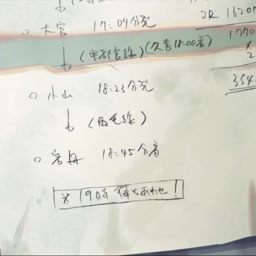 ○ 大宮 17:04分発
JR 1620円
↓ (宇都宮線)(久喜18:00着)
1770
× 2
354
○ 小山 18:23分発
↓ (両毛線)
○ 岩舟 18:45分着
※ 19時 待ち合わせ!